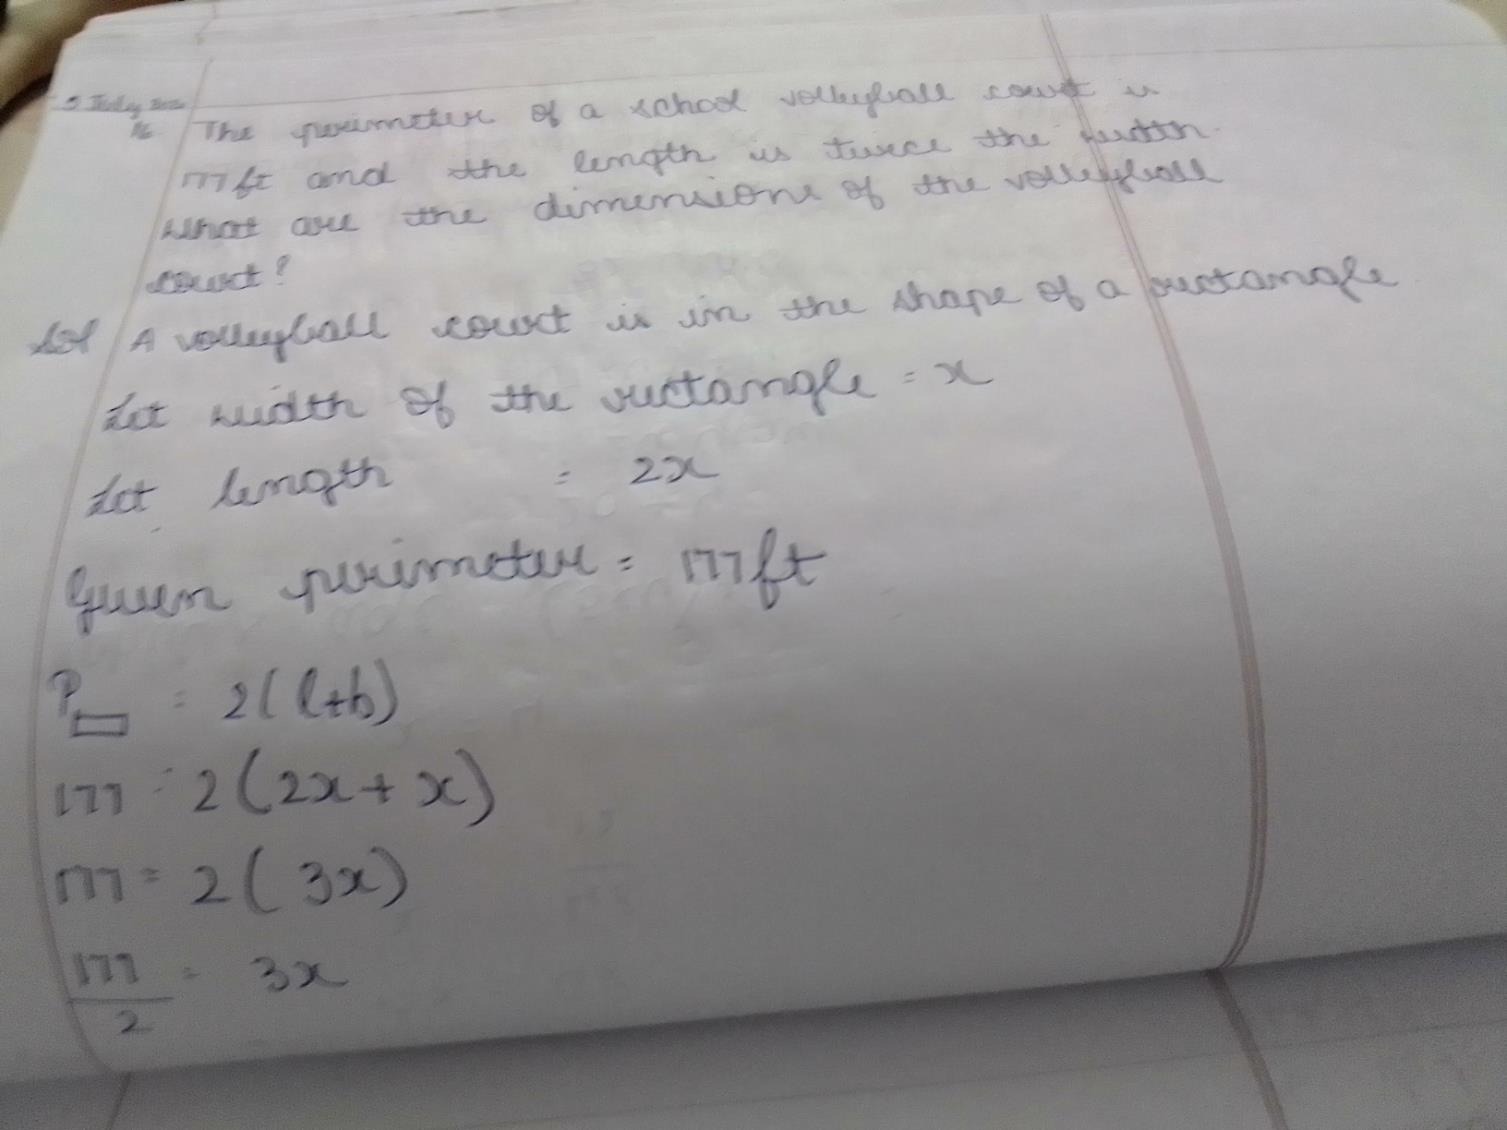 16 The perimeter of a school volleyball court is
177ft and the length is twice the width.
What are the dimensions of the volleyball
court?
Sol A volleyball court is in the shape of a rectangle
Let width of the rectangle = x
Let length = 2x
Given perimeter = 177ft
P▭ = 2(l+b)
177 = 2(2x + x)
177 = 2(3x)
177/2 = 3x